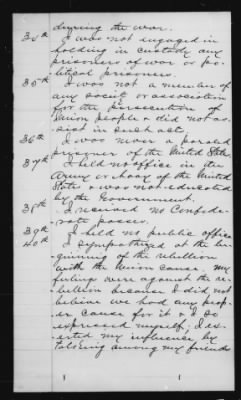 during the war.
34th I was not engaged in
holding in custody any
prisoners of war or po-
litical prisoners.
35th I was not a member of
any society or association
for the persecution of
Union people & did not as-
sist in such acts.
36th I was never a paroled
prisoner of the United States
37th I held no office in the
Army or Navy of the United
States & was not educated
by the Government.
38th I received no Confede-
rate passes.
39th I held no public office
40th I sympathized at the be-
ginning of the rebellion
with the Union cause my
feeling were against the re-
bellion because I did not
believe we had any prop-
er cause for it & I so
expressed myself; I ex-
erted my influence by
talking among my friends